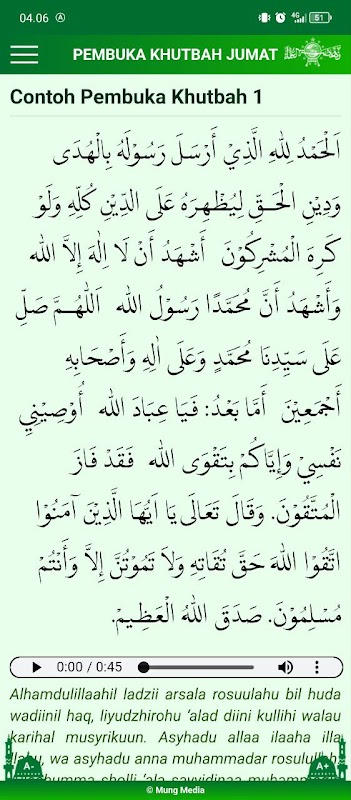 04.06
4G
51
PEMBUKA KHUTBAH JUMAT
Contoh Pembuka Khutbah 1
اَلْحَمْدُ لِلهِ الَّذِيْ أَرْسَلَ رَسُوْلَهُ بِالْهُدَى
وَدِيْنِ الْحَـقِّ لِيُظْهِرَهُ عَلَى الدِّيْنِ كُلِّهِ وَلَوْ
كَرِهَ الْمُشْرِكُوْنَ أَشْهَدُ أَنْ لَا إِلٰهَ إِلاَّ الله
وَأَشْهَدُ أَنَّ مُحَمَّدًا رَسُوْلُ الله اَللّٰهُـمَّ صَلِّ
عَلَى سَيِّدِنَا مُحَمَّدٍ وَعَلَى اٰلِهِ وَأَصْحَابِهِ
أَجْمَعِيْنَ أَمَّا بَعْدُ: فَيَا عِبَادَ الله أُوْصِيْنِيْ
نَفْسِيْ وَإِيَّاكُمْ بِتَقْوَى الله فَقَدْ فَازَ
الْمُتَّقُوْنَ. وَقَالَ تَعَالَى يَا اَيُّهَا الَّذِيْنَ آمَنُوْا
اتَّقُوْا اللهَ حَقَّ تُقَاتِهِ وَلاَ تَمُوْتُنَّ إِلاَّ وَأَنْتُمْ
مُسْلِمُوْنَ. صَدَقَ اللهُ الْعَظِيْمْ.
0:00 / 0:45
Alhamdulillaahil ladzii arsala rosuulahu bil huda
wadiinil haq, liyudzhirohu ‘alad diini kullihi walau
karihal musyrikuun. Asyhadu allaa ilaaha illa
wa asyhadu anna muhammadar rosulull
sholli ‘ala sayyidinaa
A-
A+
© Mung Media